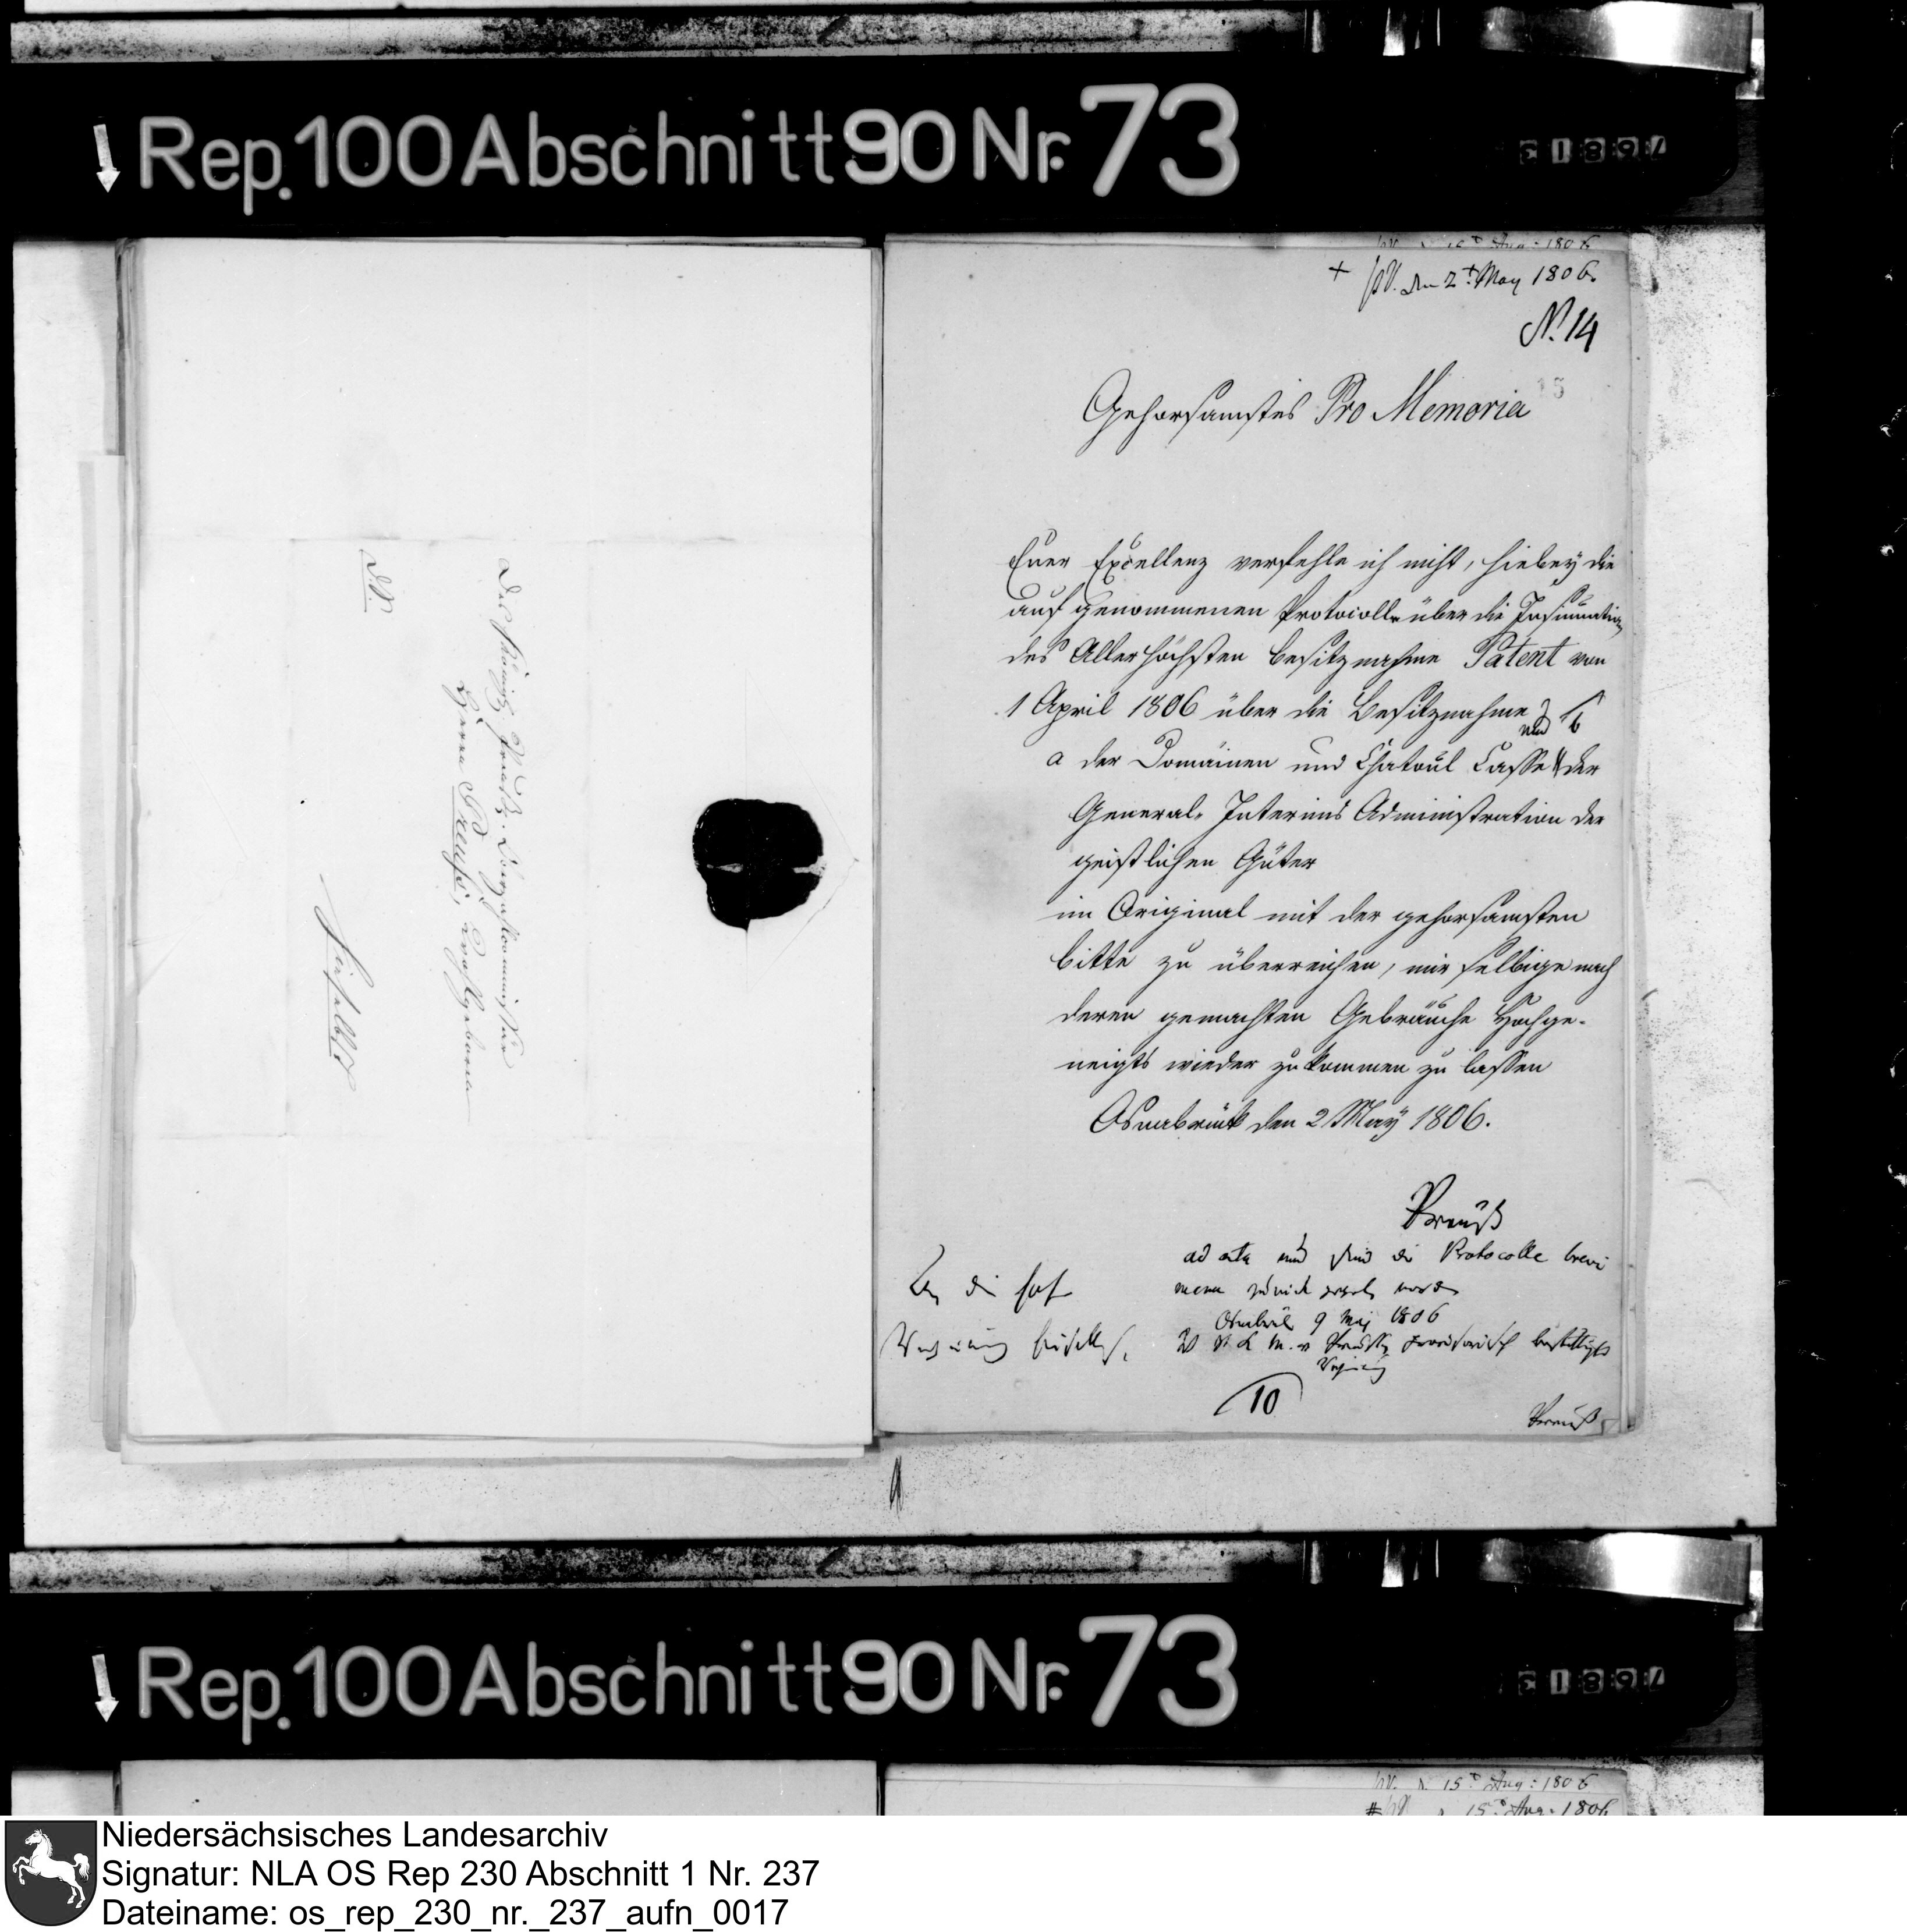 Rep. 100 Abschnitt 90 Nr. 73
31897
Des Königl. Preuß.
Herrn Preuß, Hochgeboren
hieselbst
Aug: 1806
+ den 2t. May 1806.
N. 14
15
Gehorsamstes Pro Memoria
Euer Excellenz verfehle ich nicht, hiebey die
aufgenommenen Protocolle über die Insinuation
des Allerhöchsten Besitznahme Patent von
1 April 1806 über die Besitznahme
und b
a der Domainen und Chatoul Casse der
General-Interims Administration der
geistlichen Güter
im Original mit der gehorsamsten
bitte zu überreichen, mir selbige nach
deren gemachten Gebrauche Hochge-
neigts wieder zukommen zu lassen
Osnabrück den 2 May 1806.
Preuß
ad acta und sind die Protocolle brevi
manu zurück worden
Osnabrück 9 May 1806
10
Preuß
Rep. 100 Abschnitt 90 Nr. 73
31897
15 Aug: 1806
15 Aug. 1806
Niedersächsisches Landesarchiv
Signatur: NLA OS Rep 230 Abschnitt 1 Nr. 237
Dateiname: os_rep_230_nr._237_aufn_0017